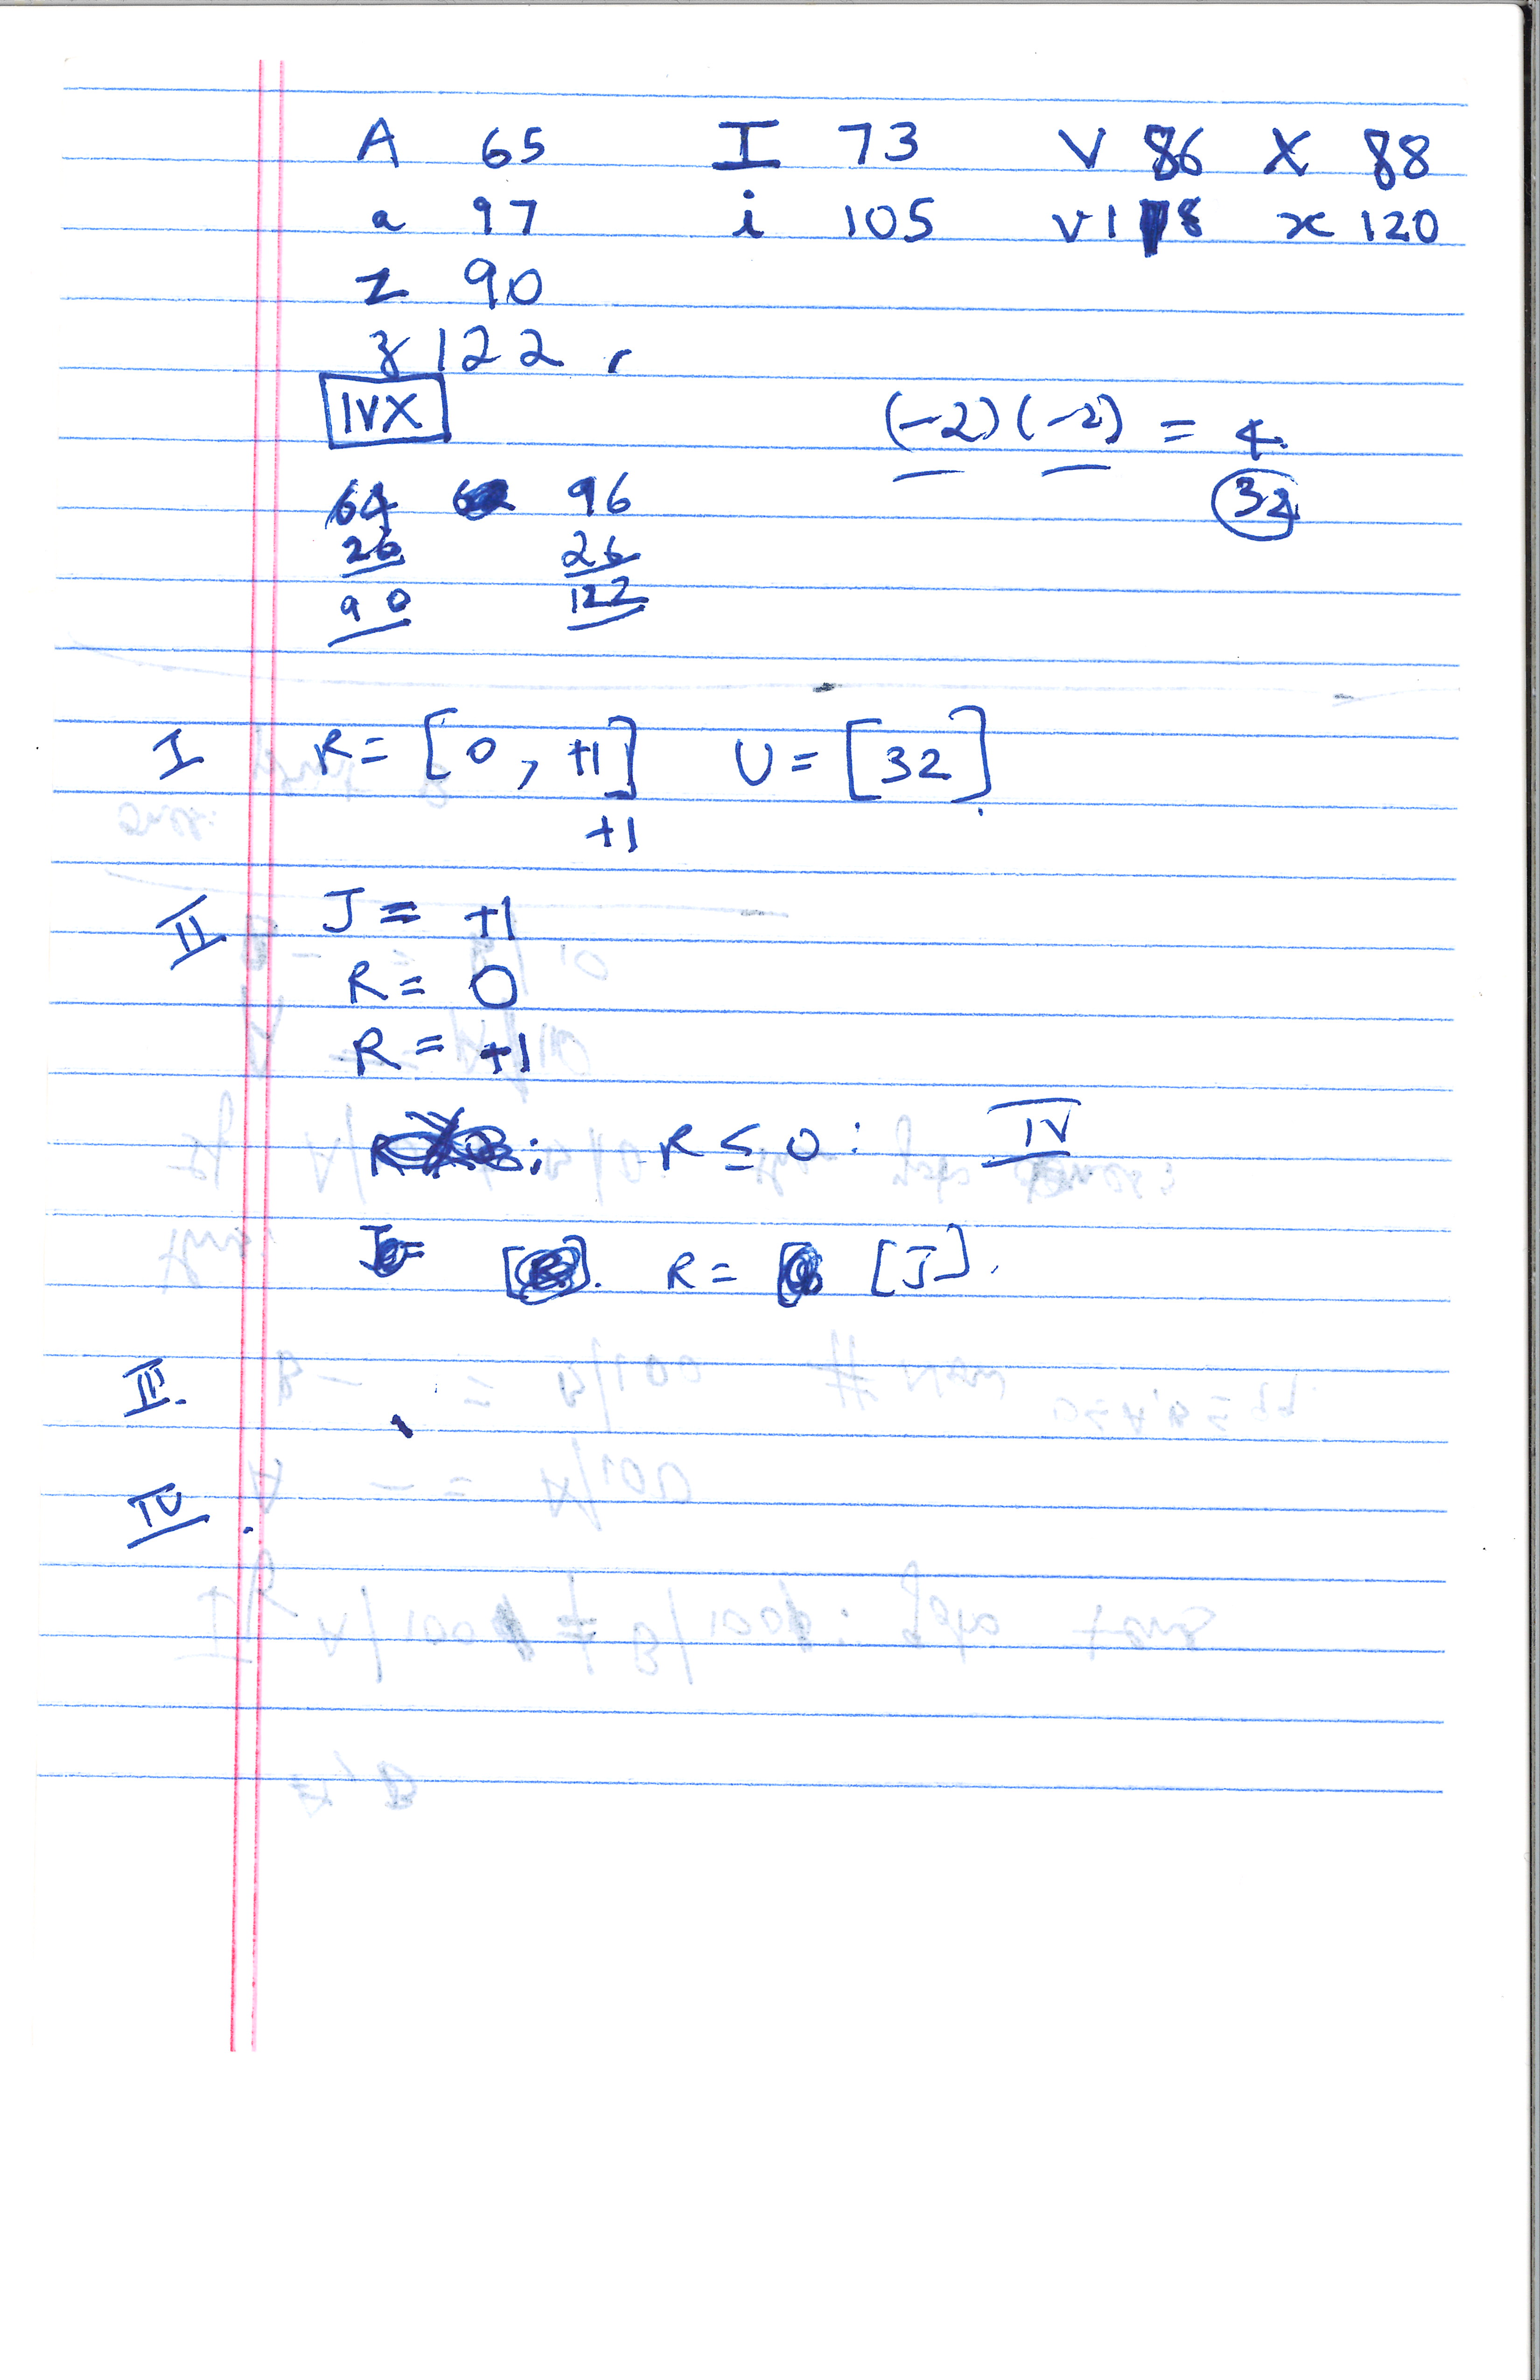 A 65 I 73 V 86 X 88
a 97 i 105 v 118 x 120
Z 90
z 122
IVX
(-2)(-2) = 4
64 96
32
26 26
90 122
I R = [0, +1] U = [32]
+1
II J = +1
R = 0
R = +1
R ≤ 0 : IV
J = R = [J].
III.
IV.